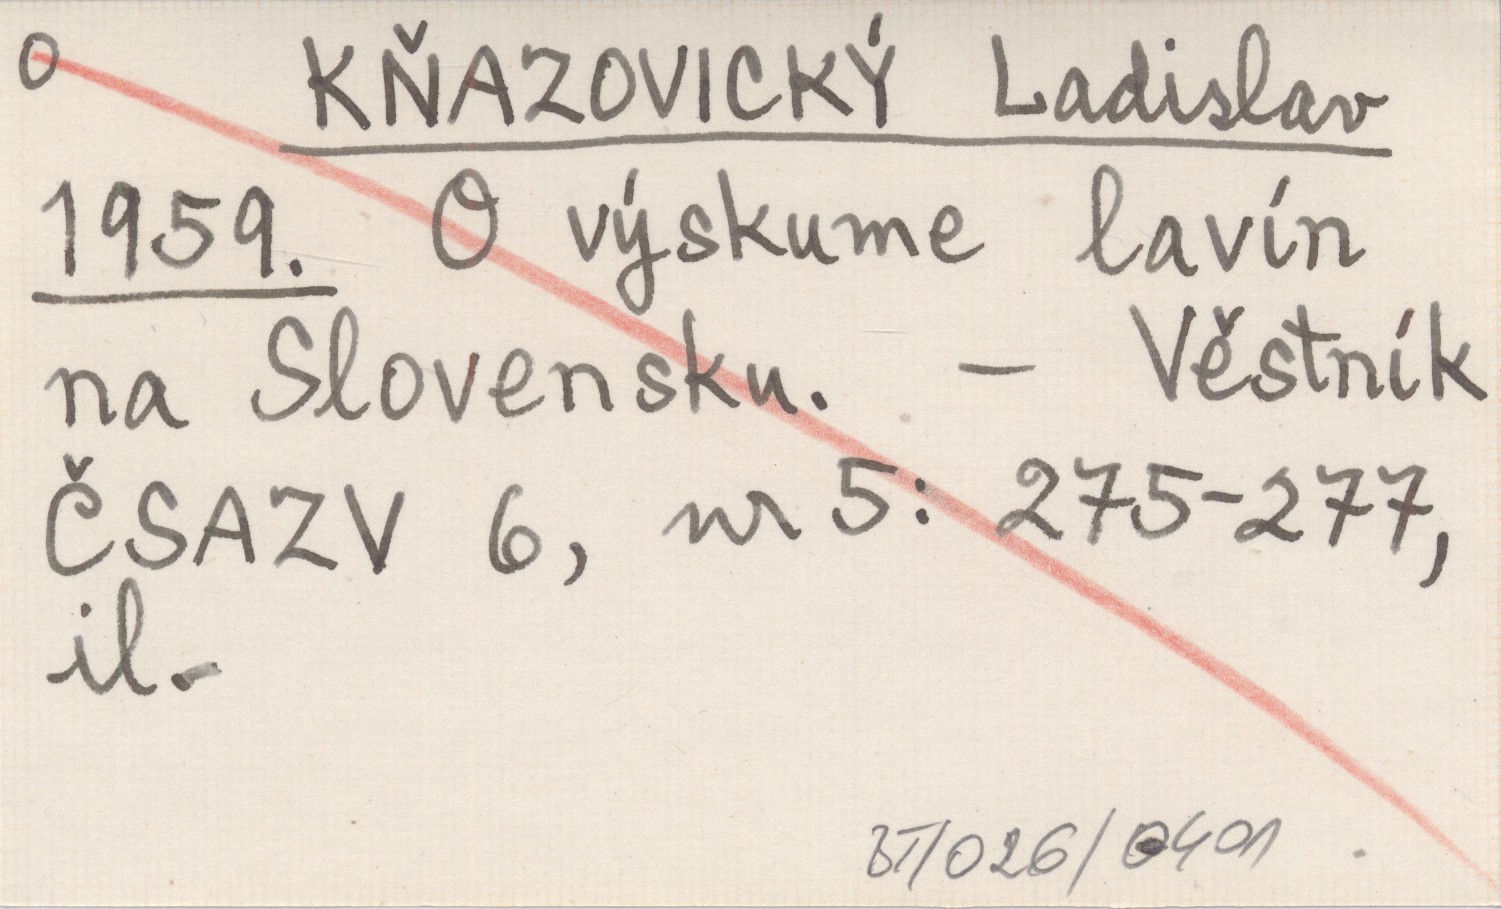 O KŇAZOVICKÝ Ladislav
1959. O výskume lavín
na Slovensku. – Věstník
ČSAZV 6, nr 5: 275-277,
il.
BT/026/0401